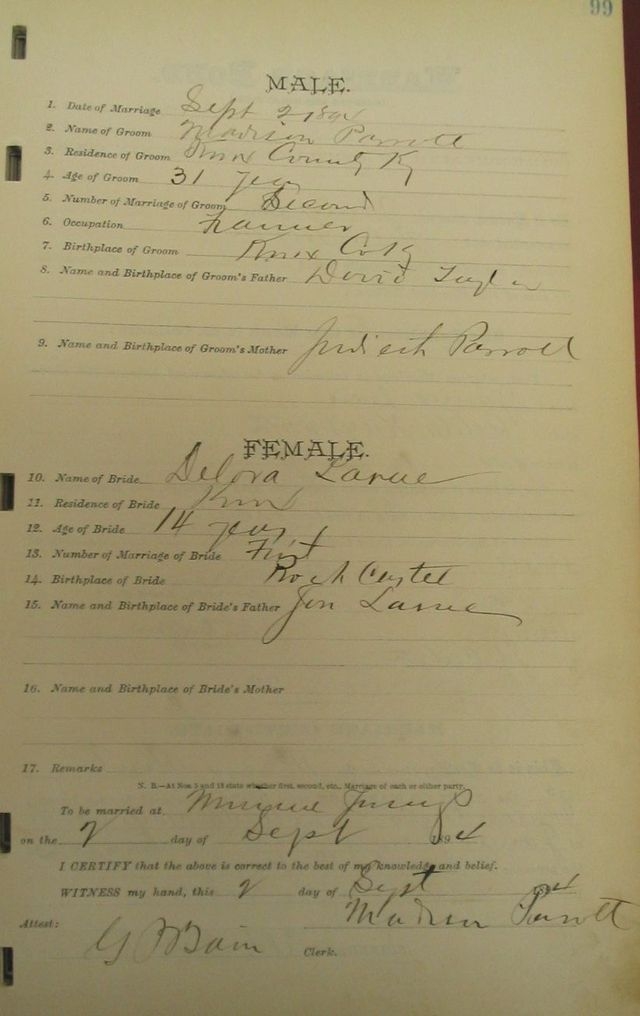 99
MALE.
1. Date of Marriage Sept 2 1894
2. Name of Groom Madison Parrott
3. Residence of Groom Knox County Ky
4. Age of Groom 31 years
5. Number of Marriage of Groom Second
6. Occupation Farmer
7. Birthplace of Groom Knox Co Ky
8. Name and Birthplace of Groom's Father David
9. Name and Birthplace of Groom's Mother Parrott
FEMALE.
10. Name of Bride Delora Larue
11. Residence of Bride Knox
12. Age of Bride 14 years
13. Number of Marriage of Bride First
14. Birthplace of Bride Rock Castel
15. Name and Birthplace of Bride's Father Larue
16. Name and Birthplace of Bride's Mother
17. Remarks
N. B.—At Nos 5 and 13 state whether first, second, etc., Marriage of each or either party.
To be married at
on the 2 day of Sept 1894
I CERTIFY that the above is correct to the best of my knowledge and belief.
WITNESS my hand, this 2 day of Sept 94
Madison Parrott
Attest:
Clerk.